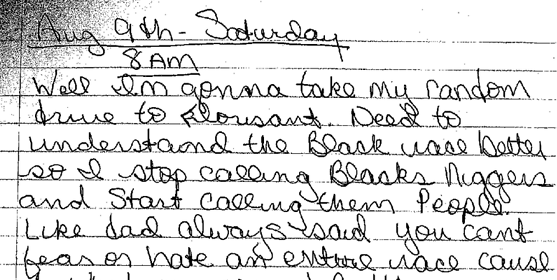 Aug 9th - Saturday
8 AM
Well Im gonna take my random
drive to Florisant. Need to
understand the Black race better
so I stop calling Blacks Niggers
and Start calling them People.
Like dad always said you cant
fear or hate an entire race cause